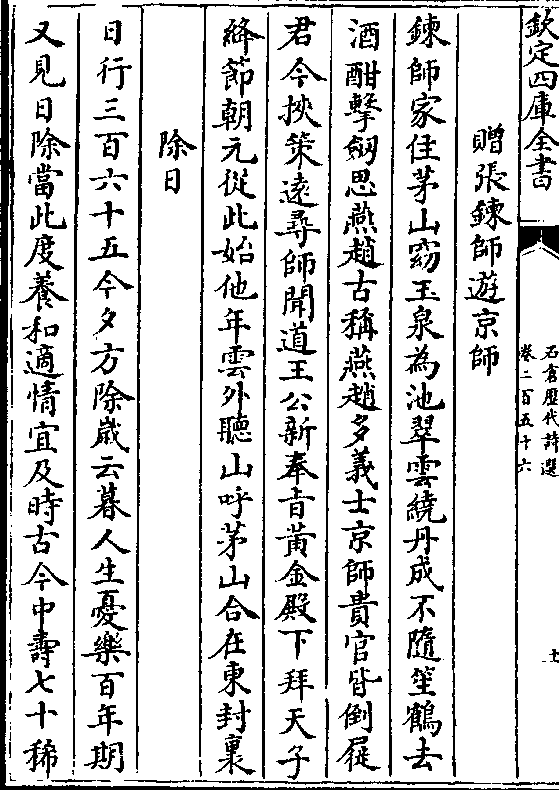 欽定四庫全書
石倉歷代詩選
卷二百五十六
贈張鍊師遊京師
鍊師家住茅山窈玉泉為池翠雲繞丹成不隨笙鶴去
酒酣擊劔思燕趙古稱燕趙多義士京師貴官皆倒屣
君今挾策逺尋師聞道王公新奉旨黄金殿下拜天子
絳節朝元從此始他年雲外聽山呼茅山合在東封裏
除日
日行三百六十五今夕方除嵗云暮人生憂樂百年期
又見日除當此度養和適情宜及時古今中夀七十稀